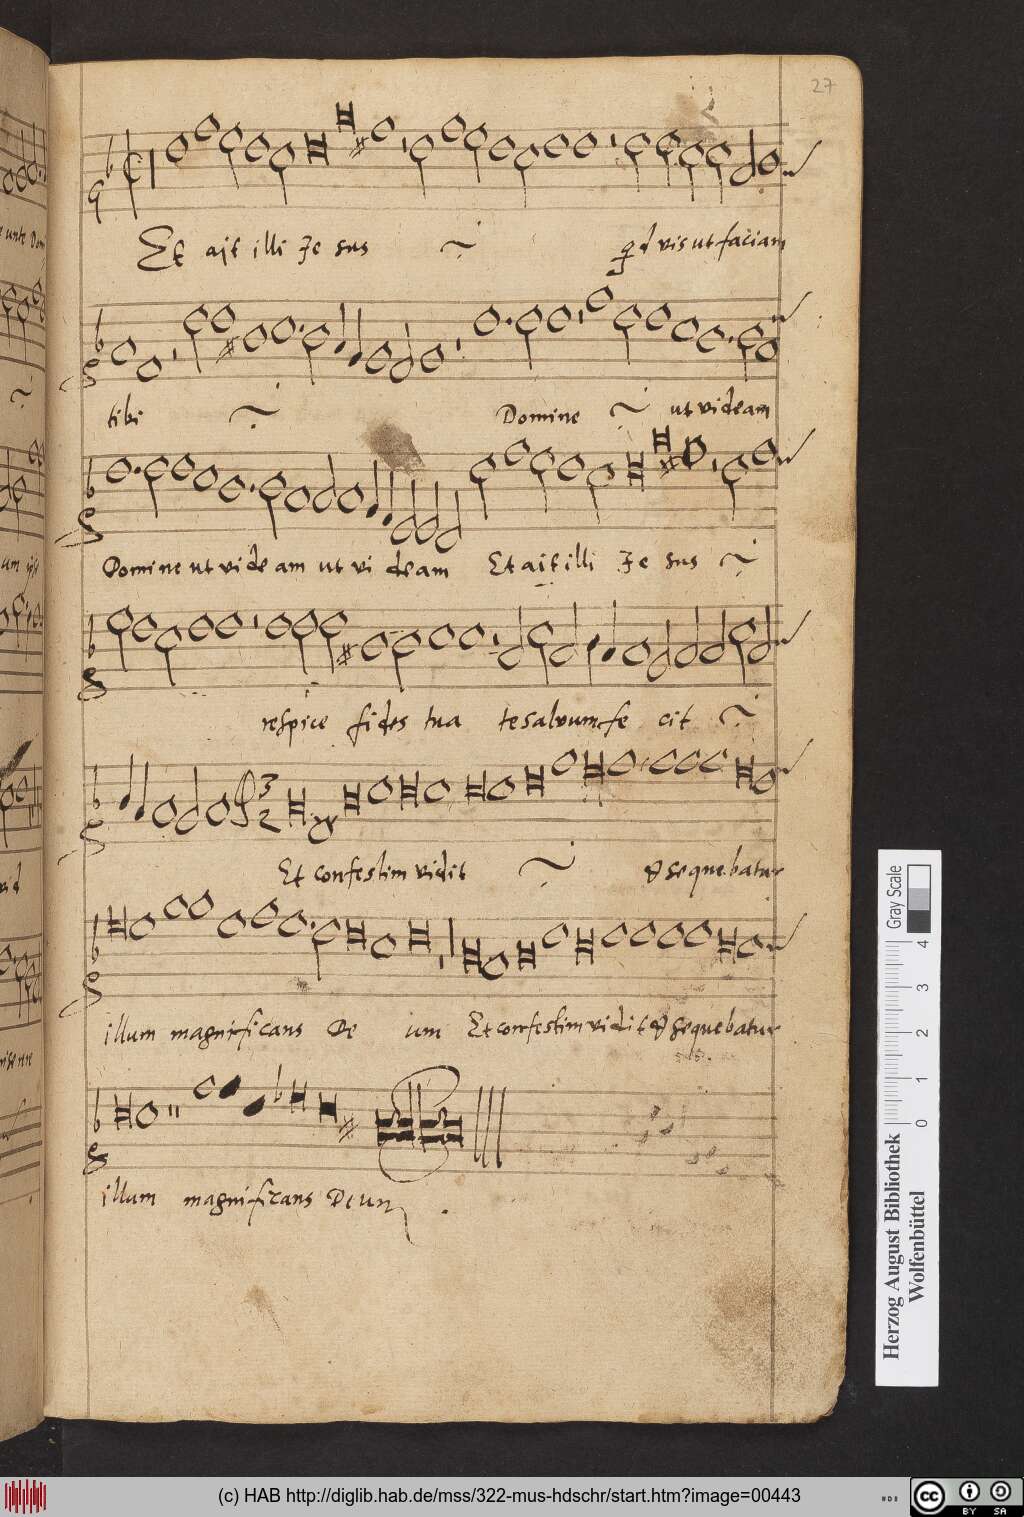 27
Et ait illi Je sus qd vis ut faciam
tibi Domine ut videam
Domine ut vi de am ut vi de am Et ait illi Je sus
respice fides tua te salvum fe cit
3
2
Et confestim vidit & sequebatur
illum magnificans De um Et confestim vidit & sequebatur
illum magnificans Deum
Gray Scale
0 1 2 3 4
Herzog August Bibliothek
Wolfenbüttel
(c) HAB http://diglib.hab.de/mss/322-mus-hdschr/start.htm?image=00443
cc BY SA